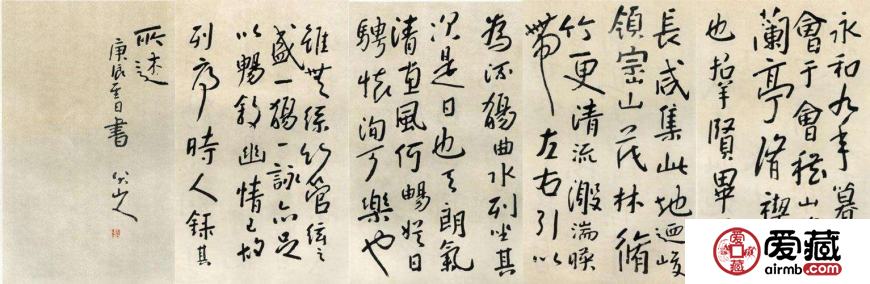 永和九年暮
會于會稽山
蘭亭脩禊
也羣賢畢
長咸集此地迺峻
領崇山茂林脩
竹更清流激湍暎
帶左右引以
為流觴曲水列坐其
次是日也天朗氣
清惠風何暢娛目
騁懷洵可樂也
雖無絲竹管弦之
盛一觴一詠亦足
以暢敘幽情已故
列序時人錄其
所述
庚辰至日書 八大山人
爱藏
爱藏
airmb.com